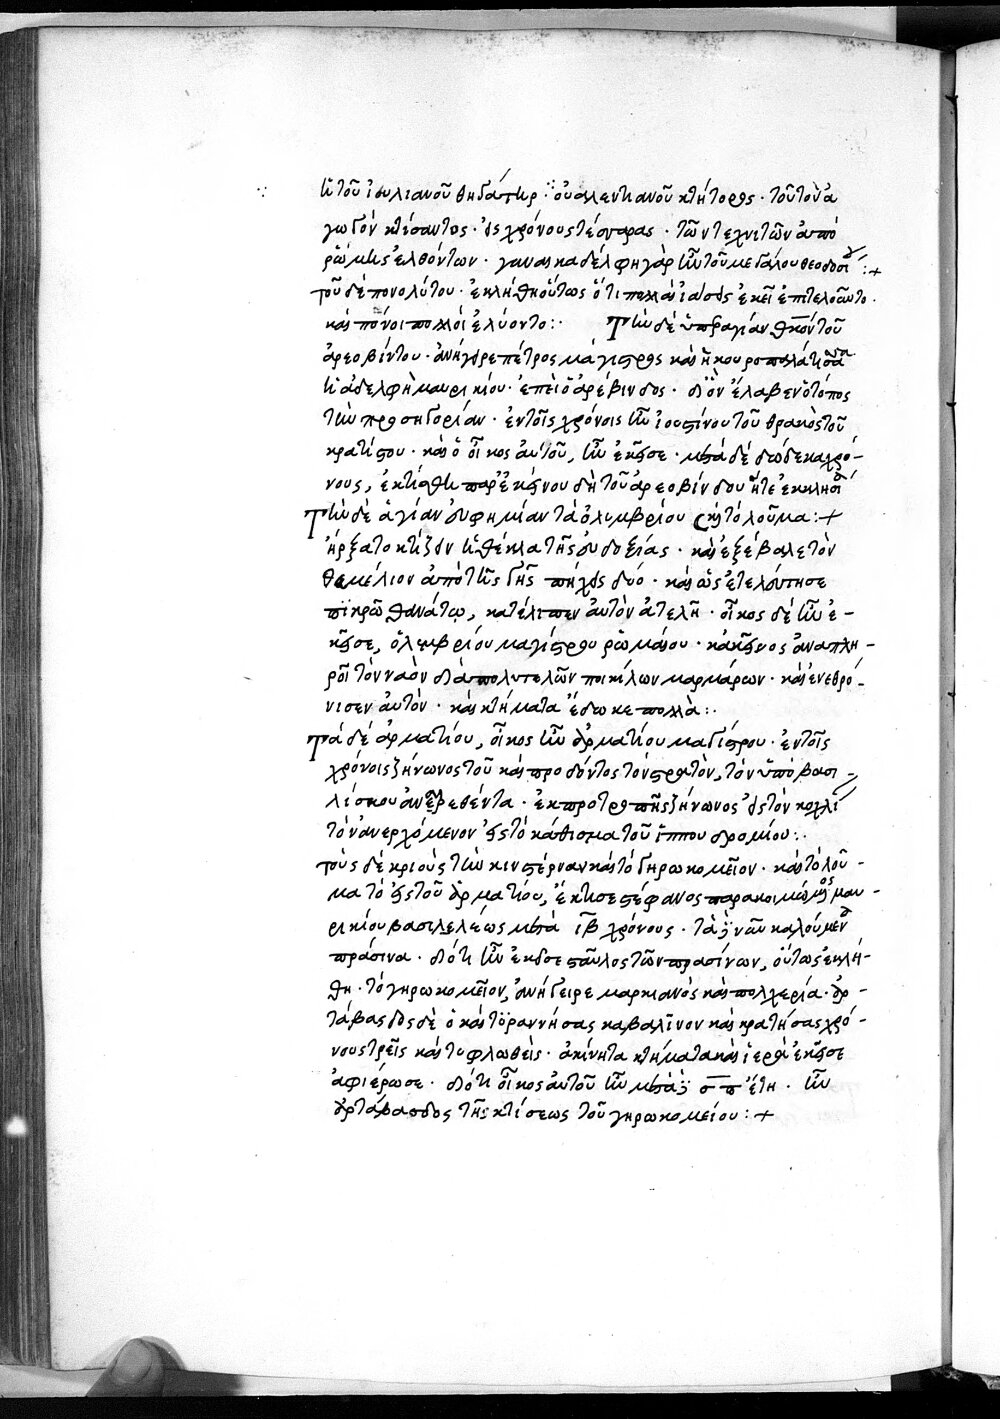 ἡ τοῦ ἰουλιανοῦ θυγάτηρ· οὐαλεντιανοῦ κτήτορος· τοῦτον ἀ
γωγὸν κτίσαντος· εἰς χρόνους τέσσαρας· τῶν τεχνιτῶν ἀπὸ
ῥώμης ἐλθόντων· γυναικαδέλφη γὰρ ἦν τοῦ μεγάλου θεοδοσί :+
τοῦ δὲ πονολύτου· ἐκλήθη οὕτως ὅτι πολλαὶ ἰάσεις ἐκεῖ ἐπετελοῦντο·
καὶ πόνοι πολλοὶ ἐλύοντο:· Τὴν δὲ ὑπεραγίαν θκον τοῦ
ἀρεοβίντου· ἀνήγειρε πέτρος μάγιστρος καὶ κουροπαλάτης
ἀδελφὴ μαυρικίου· ἐπεὶ ὁ ἀρέβινδος· δι' ὃν ἔλαβεν ὁ τόπος
τὴν προσηγορίαν· ἐν τοῖς χρόνοις ἦν ἰουστίνου τοῦ θρακὸς τοῦ
κρατίστου· καὶ ὁ οἶκος αὐτοῦ, ἦν ἐκεῖσε· μετὰ δὲ δώδεκα χρό-
νους, ἐκτίσθη παρ' ἐκείνου δὴ τοῦ ἀρεοβίνδου ἥτε ἐκκλησί
Τὴν δὲ ἁγίαν εὐφημίαν τὰ ὀλυμβρίου καὶ τὸ λοῦμα:+
ἤρξατο κτίζειν ἡ θέκλα τῆς εὐδοξίας· καὶ ἐξέβαλε τὸν
θεμέλιον ἀπὸ τῆς γῆς πήχεις δύο· καὶ ὡς ἐτελεύτησε
πικρῶ θανάτω, κατέλιπεν αὐτὸν ἀτελῆ· οἶκος δὲ ἦν ἐ-
κεῖσε, ὀλυμβρίου μαγίστρου ῥωμαίου· κἀκεῖνος ἀναπλη-
ροῖ τὸν ναὸν διὰ πολυτελῶν ποικίλων μαρμάρων· καὶ ἐνεθρό-
νισεν αὐτόν· καὶ κτήματα ἔδωκε πολλὰ:·
Τὰ δὲ ἁρματίου, οἶκος ἦν ἁρματίου μαγίστρου· ἐν τοῖς
χρόνοις ζήνωνος τοῦ καὶ προδόντος τὸν στρατὸν, τὸν ὑπὸ βασι-
λίσκου ἀναιρεθέντα· ἐκ προτροπῆς ζήνωνος εἰς τὸν κοχλί
τὸν ἀνερχόμενον εἰς τὸ κάθισμα τοῦ ἱπποδρομίου:·
τοὺς δὲ κριοὺς τὴν κινστέρναν καὶ τὸ γηρωκομεῖον· καὶ τὸ λοῦ-
μα τὸ εἰς τοῦ ἁρματίου, ἔκτισε στέφανος παρακοιμώμενος μαυ-
ρικίου βασιλέως μετὰ ιβ χρόνους· τὰ νῦν καλούμεν
πράσινα· διότι ἦν ἐκεῖσε σταῦλος τῶν πρασίνων, οὕτως ἐκλή-
θη· τὸ γηρωκομεῖον, ἀνήγειρε μαρκιανὸς καὶ πολχερία· ἀρ-
τάβασδος δὲ ὁ καὶ τυραννήσας καβαλῖνον καὶ κρατήσας χρό-
νους τρεῖς καὶ τυφλωθεὶς· ἀκίνητα κτήματα καὶ ἱερὰ ἐκεῖσε
ἀφιέρωσε· διότι οἶκος αὐτοῦ ἦν μετὰ ἔτη· ἦν
ἀρτάβασδος τῆς κτίσεως τοῦ γηρωκομείου:+